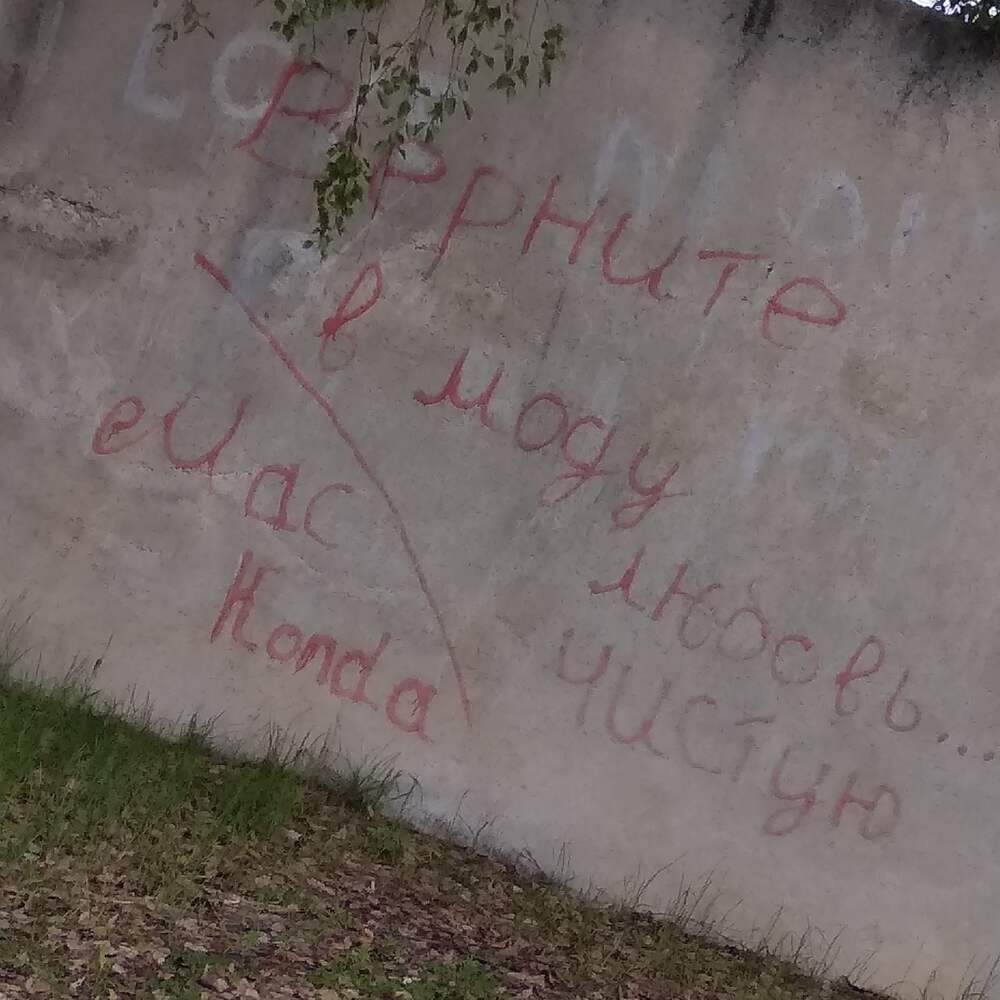 Верните
в моду
любовь...
чистую
Honda